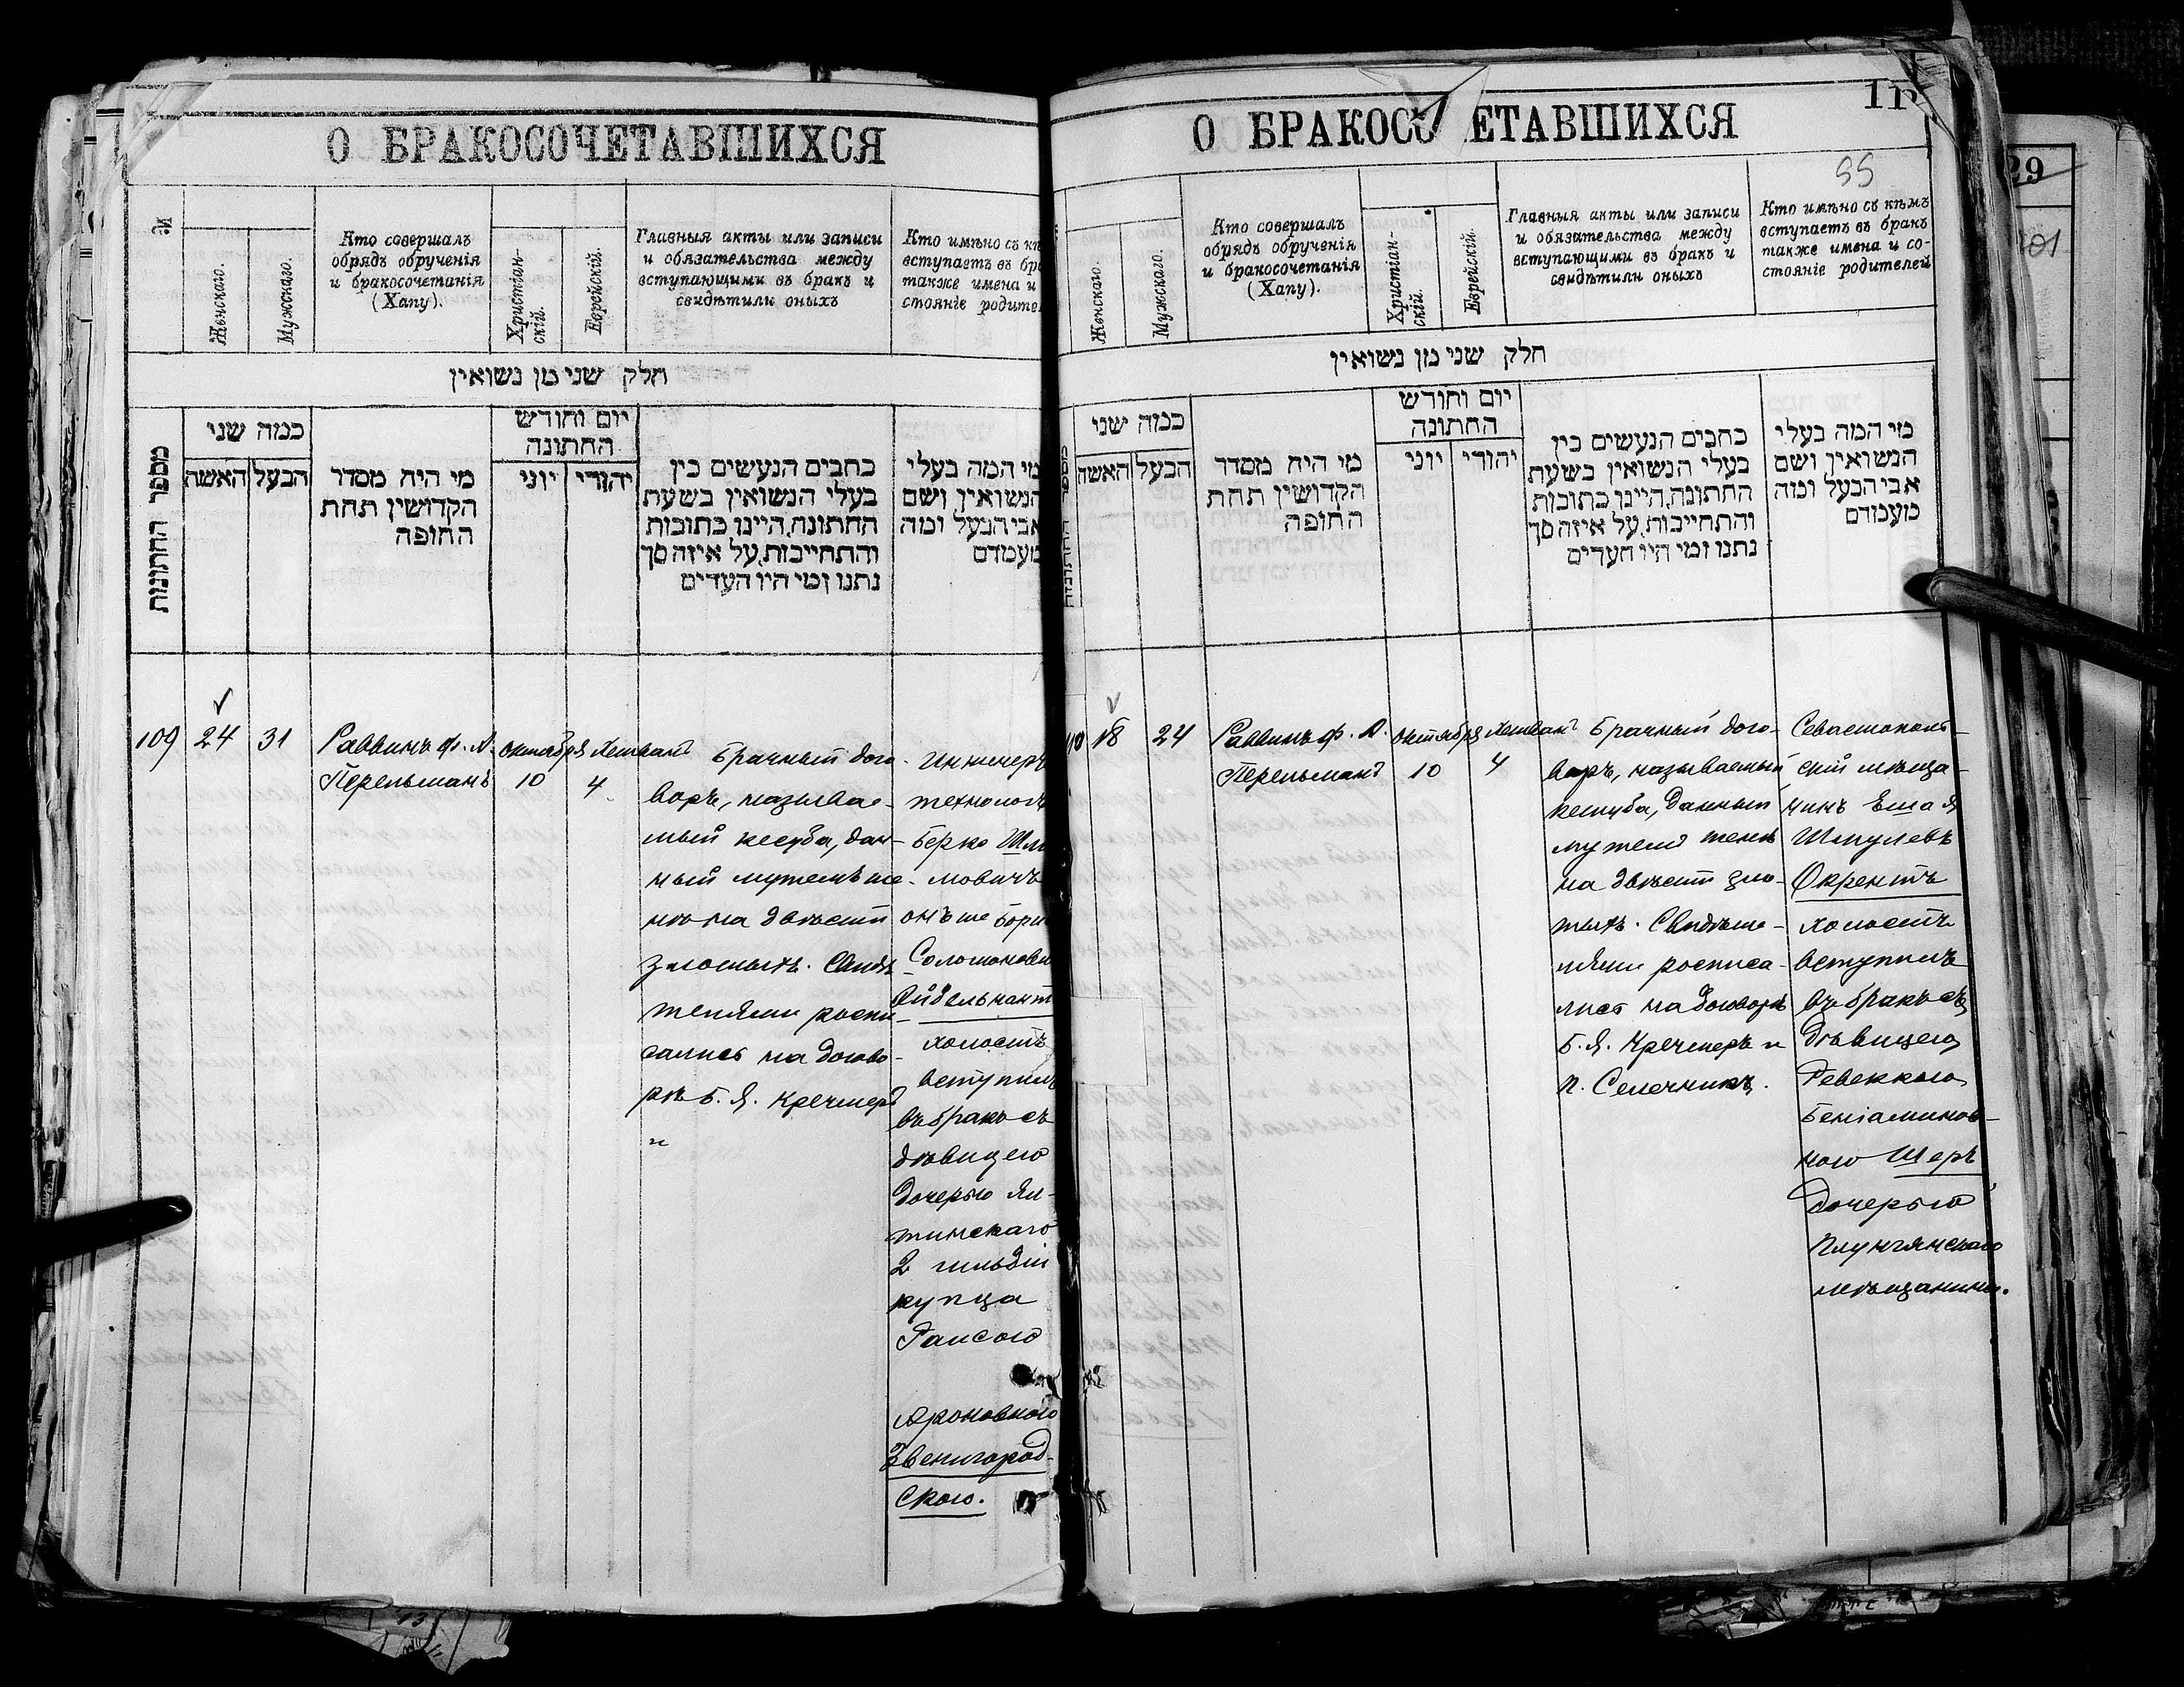 О БРАКОСОЧЕТАВШИХСЯ
№
Женскаго.
Мужскаго.
Кто совершалъ
обрядъ обрученія
и бракосочетанія
(Хапу).
Христіан-
скій.
Еврейскій.
Главныя акты или записи
и обязательства между
вступающими въ бракъ и
свидѣтили оныхъ
Кто имѣно съ
вступаетъ въ
также имена и
стояніе
חלק שני מן נשואין
מספר החתונות
כמה שני
האשה
הבעל
מי היה מסדר
הקדושין תחת
החופה
יום וחודש
החתונה
יוני
יהודי
כתבים הנעשים בין
בעלי הנשואין בשעת
החתונה, היינו, כתובות
והתחייבות, על איזה סך
נתנו ומי היו העדים
מי המה בעלי
הנשואין ושם
אבי הבעל ומה
מעמדם
109
24
31
Раввинъ Ф. Л.
Перельманъ
октября
10
Хешванъ
4
Брачный дого-
воръ, называе-
мый кесуба, дан-
ный мужемъ же-
нѣ на двѣсти
злотыхъ. Свидѣ
телями роспи-
сались на догово-
рѣ Б. Я. Кречмеръ
и
Инженеръ
технологъ
Берко Шль
мовичъ
онъ же
Соломонови
Айдельнант
холостъ
вступилъ
въ бракъ съ
дѣвицею
дочерью Ял-
тинскаго
2 гильдіи
купца
Раисою
Ароновною
Звенигород-
скою.
О БРАКОСО ЕТАВШИХСЯ
11
55
Женскаго.
Мужскаго.
Кто совершалъ
обрядъ обрученія
и бракосочетанія
(Хапу).
Христіан-
скій.
Еврейскій.
Главныя акты или записи
и обязательства между
вступающими въ бракъ и
свидѣтили оныхъ
Кто имѣно съ кѣмъ
вступаетъ въ бракъ
также имена и со-
стояніе родителей
חלק שני מן נשואין
כמה שני
האשה
הבעל
מי היה מסדר
הקדושין תחת
החופה
יום וחודש
החתונה
יוני
יהודי
כתבים הנעשים בין
בעלי הנשואין בשעת
החתונה, היינו, כתובות
והתחייבות, על איזה סך
נתנו ומי היו העדים
מי המה בעלי
הנשואין ושם
אבי הבעל ומה
מעמדם
18
24
Раввинъ Ф. Л.
Перельманъ
октября
10
Хешванъ
4
Брачный дого-
воръ, называемый
кесуба, данный
мужемъ женѣ
на двѣсти зло-
тыхъ. Свидѣте-
лями росписа-
лись на договорѣ
Б. Я. Кречмеръ и
П. Селечникъ.
Севастополь-
скій мѣща-
нинъ Ешая
Шмулевъ
Окрентъ
холостъ
вступилъ
въ бракъ съ
дѣвицею
Ревеккою
Беніаминов-
ною Шеръ
дочерью
Плунгянскаго
мѣщанина.
29
101